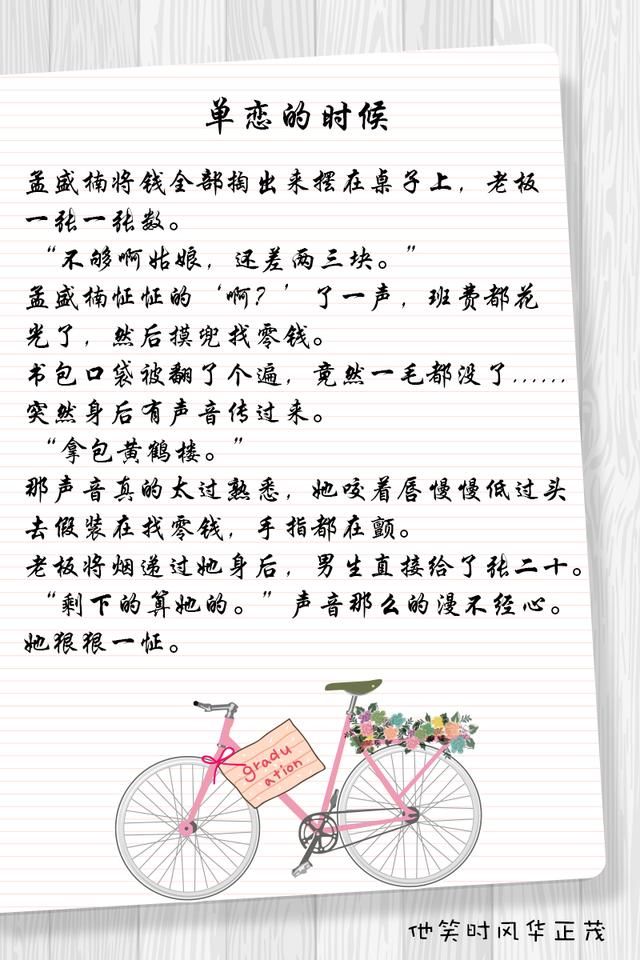 单恋的时候
孟盛楠将钱全部掏出来摆在桌子上，老板
一张一张数。
“不够啊姑娘，还差两三块。”
孟盛楠怔怔的‘啊？’了一声，班费都花
光了，然后摸兜找零钱。
书包口袋被翻了个遍，竟然一毛都没了......
突然身后有声音传过来。
“拿包黄鹤楼。”
那声音真的太过熟悉，她咬着唇慢慢低过头
去假装在找零钱，手指都在颤。
老板将烟递过她身后，男生直接给了张二十。
“剩下的算她的。”声音那么的漫不经心。
她狠狠一怔。
gradu
ation
他笑时风华正茂